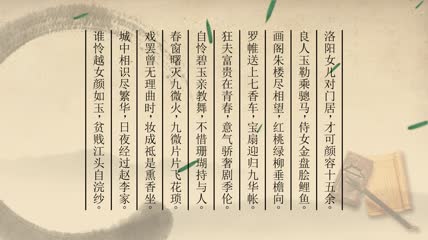 洛阳女儿对门居，才可颜容十五余。
良人玉勒乘骢马，侍女金盘脍鲤鱼。
画阁朱楼尽相望，红桃绿柳垂檐向。
罗帷送上七香车，宝扇迎归九华帐。
狂夫富贵在青春，意气骄奢剧季伦。
自怜碧玉亲教舞，不惜珊瑚持与人。
春窗曙灭九微火，九微片片飞花琐。
戏罢曾无理曲时，妆成祗是熏香坐。
城中相识尽繁华，日夜经过赵李家。
谁怜越女颜如玉，贫贱江头自浣纱。